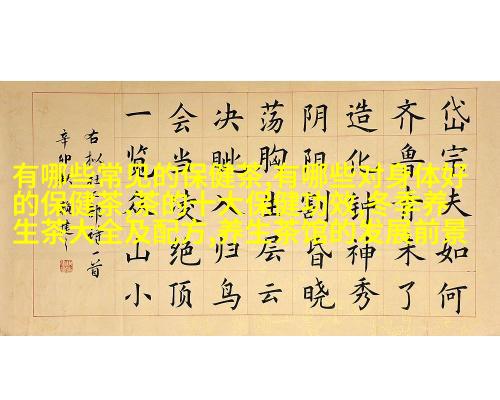 有哪些常见的保健茶,有哪些对身体好
的保健茶,茶的十大保健功效,冬季养
生茶大全及配方,养生茶馆的发展前景
岱宗夫如何
齐鲁青未了
造化钟神秀
阴阳割昏晓
荡胸生层云
决眦入归鸟
会当凌绝顶
一览众山小
右拟杜诗一首
辛卯